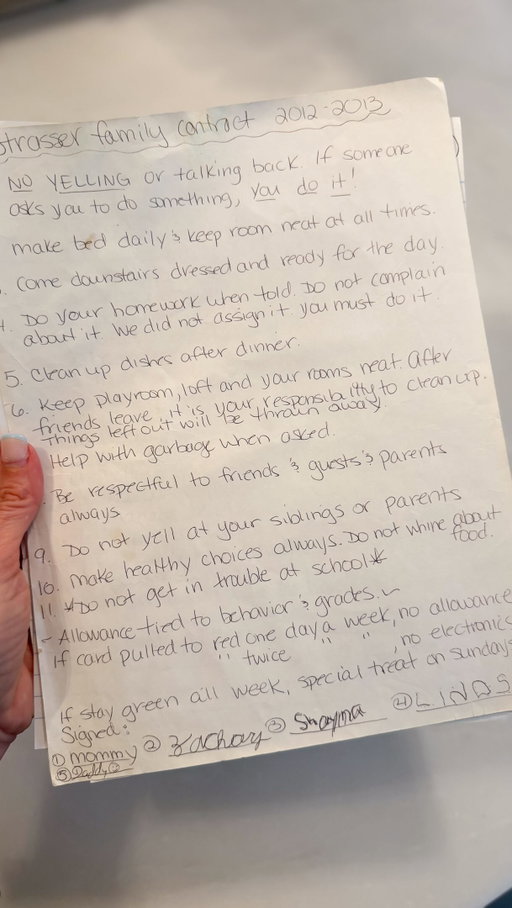 Strasser family Contract 2012-2013
NO YELLING or talking back. If someone
asks you to do something, you do it!
make bed daily & keep room neat at all times.
Come downstairs dressed and ready for the day.
4. Do your homework when told. Do not complain
about it. We did not assign it. you must do it.
5. Clean up dishes after dinner.
6. Keep playroom, loft and your rooms neat. After
friends leave, it is your responsibility to clean up.
Things left out will be thrown away.
Help with garbage when asked.
Be respectful to friends & guests & parents
always
9. Do not yell at your siblings or parents
10. make healthy choices always. Do not whine about
food.
11. *Do not get in trouble at school*
- Allowance-tied to behavior & grades.
If card pulled to red one day a week, no allowance
" " twice " " , no electronics
If stay green all week, special treat on Sundays
Signed:
① mommy ② Zachary ③ Shayna ④ LINDS
⑤ Daddy